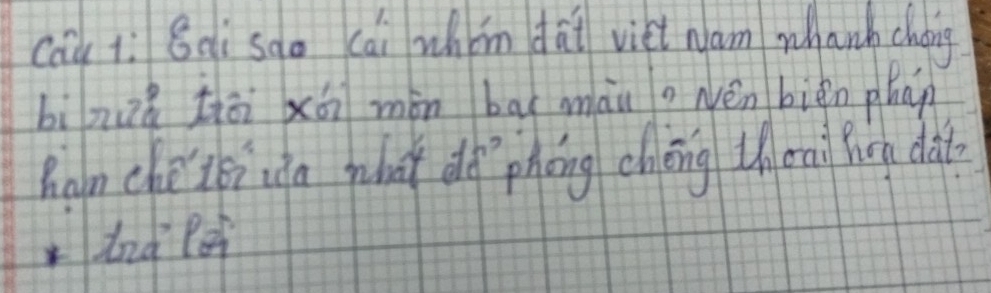 Câu 1: Sại sao cái nhóm đất việt Nam nhanh chóng
bị rửa trôi xói mòn bạc màu ? Nên biện pháp
hạn chế tối ưa nhất để phòng chống thoái hóa đất?
* trả lời